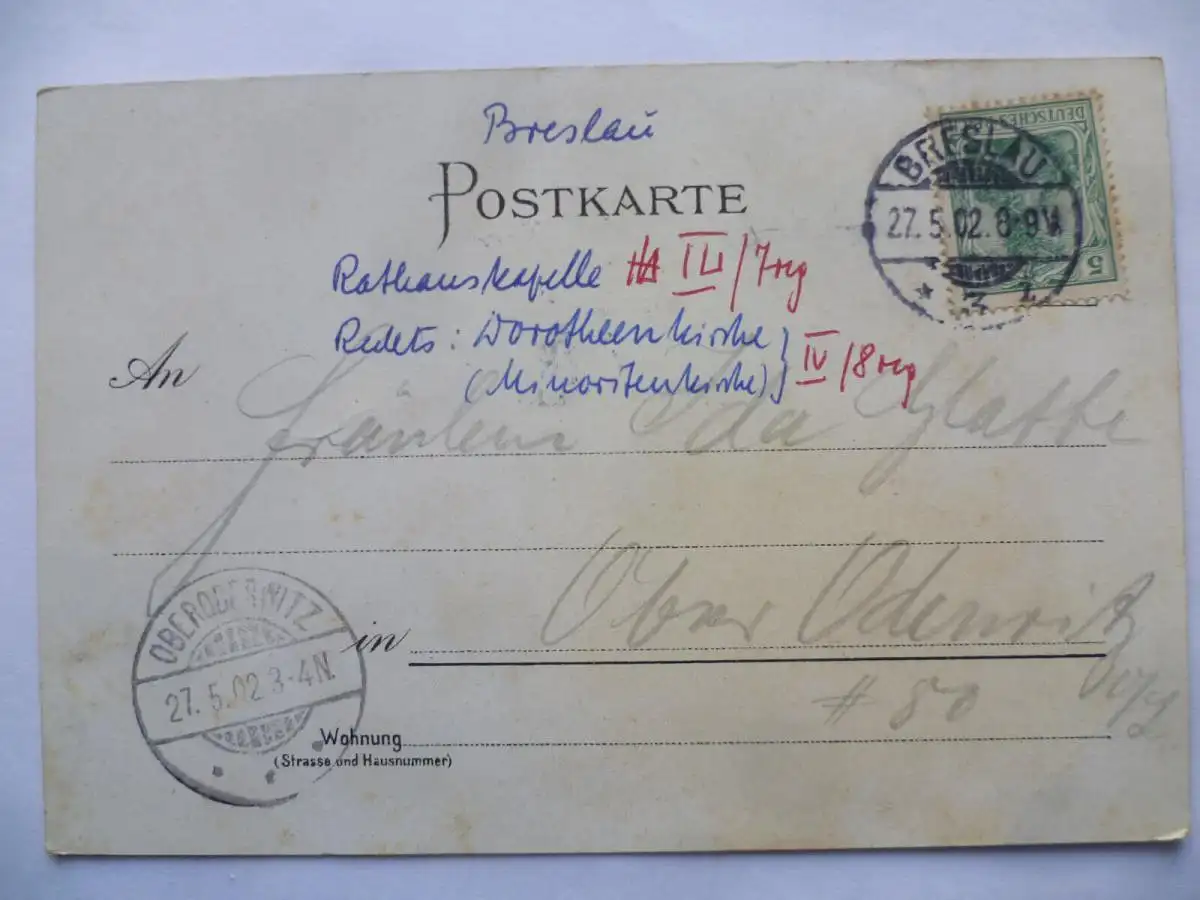 Breslau
POSTKARTE
DEUTSCHES
5
BRESLAU
27.5.02.8-9V.
* 3 *
Rathauskapelle III/7
Dorotheenkirche
(Minoritenkirche)} IV/8
An Fräulein Ida Glathe
in Ober Oderwitz
# 80
OBERODERWITZ
27.5.02 3-4N.
Wohnung
(Strasse und Hausnummer)